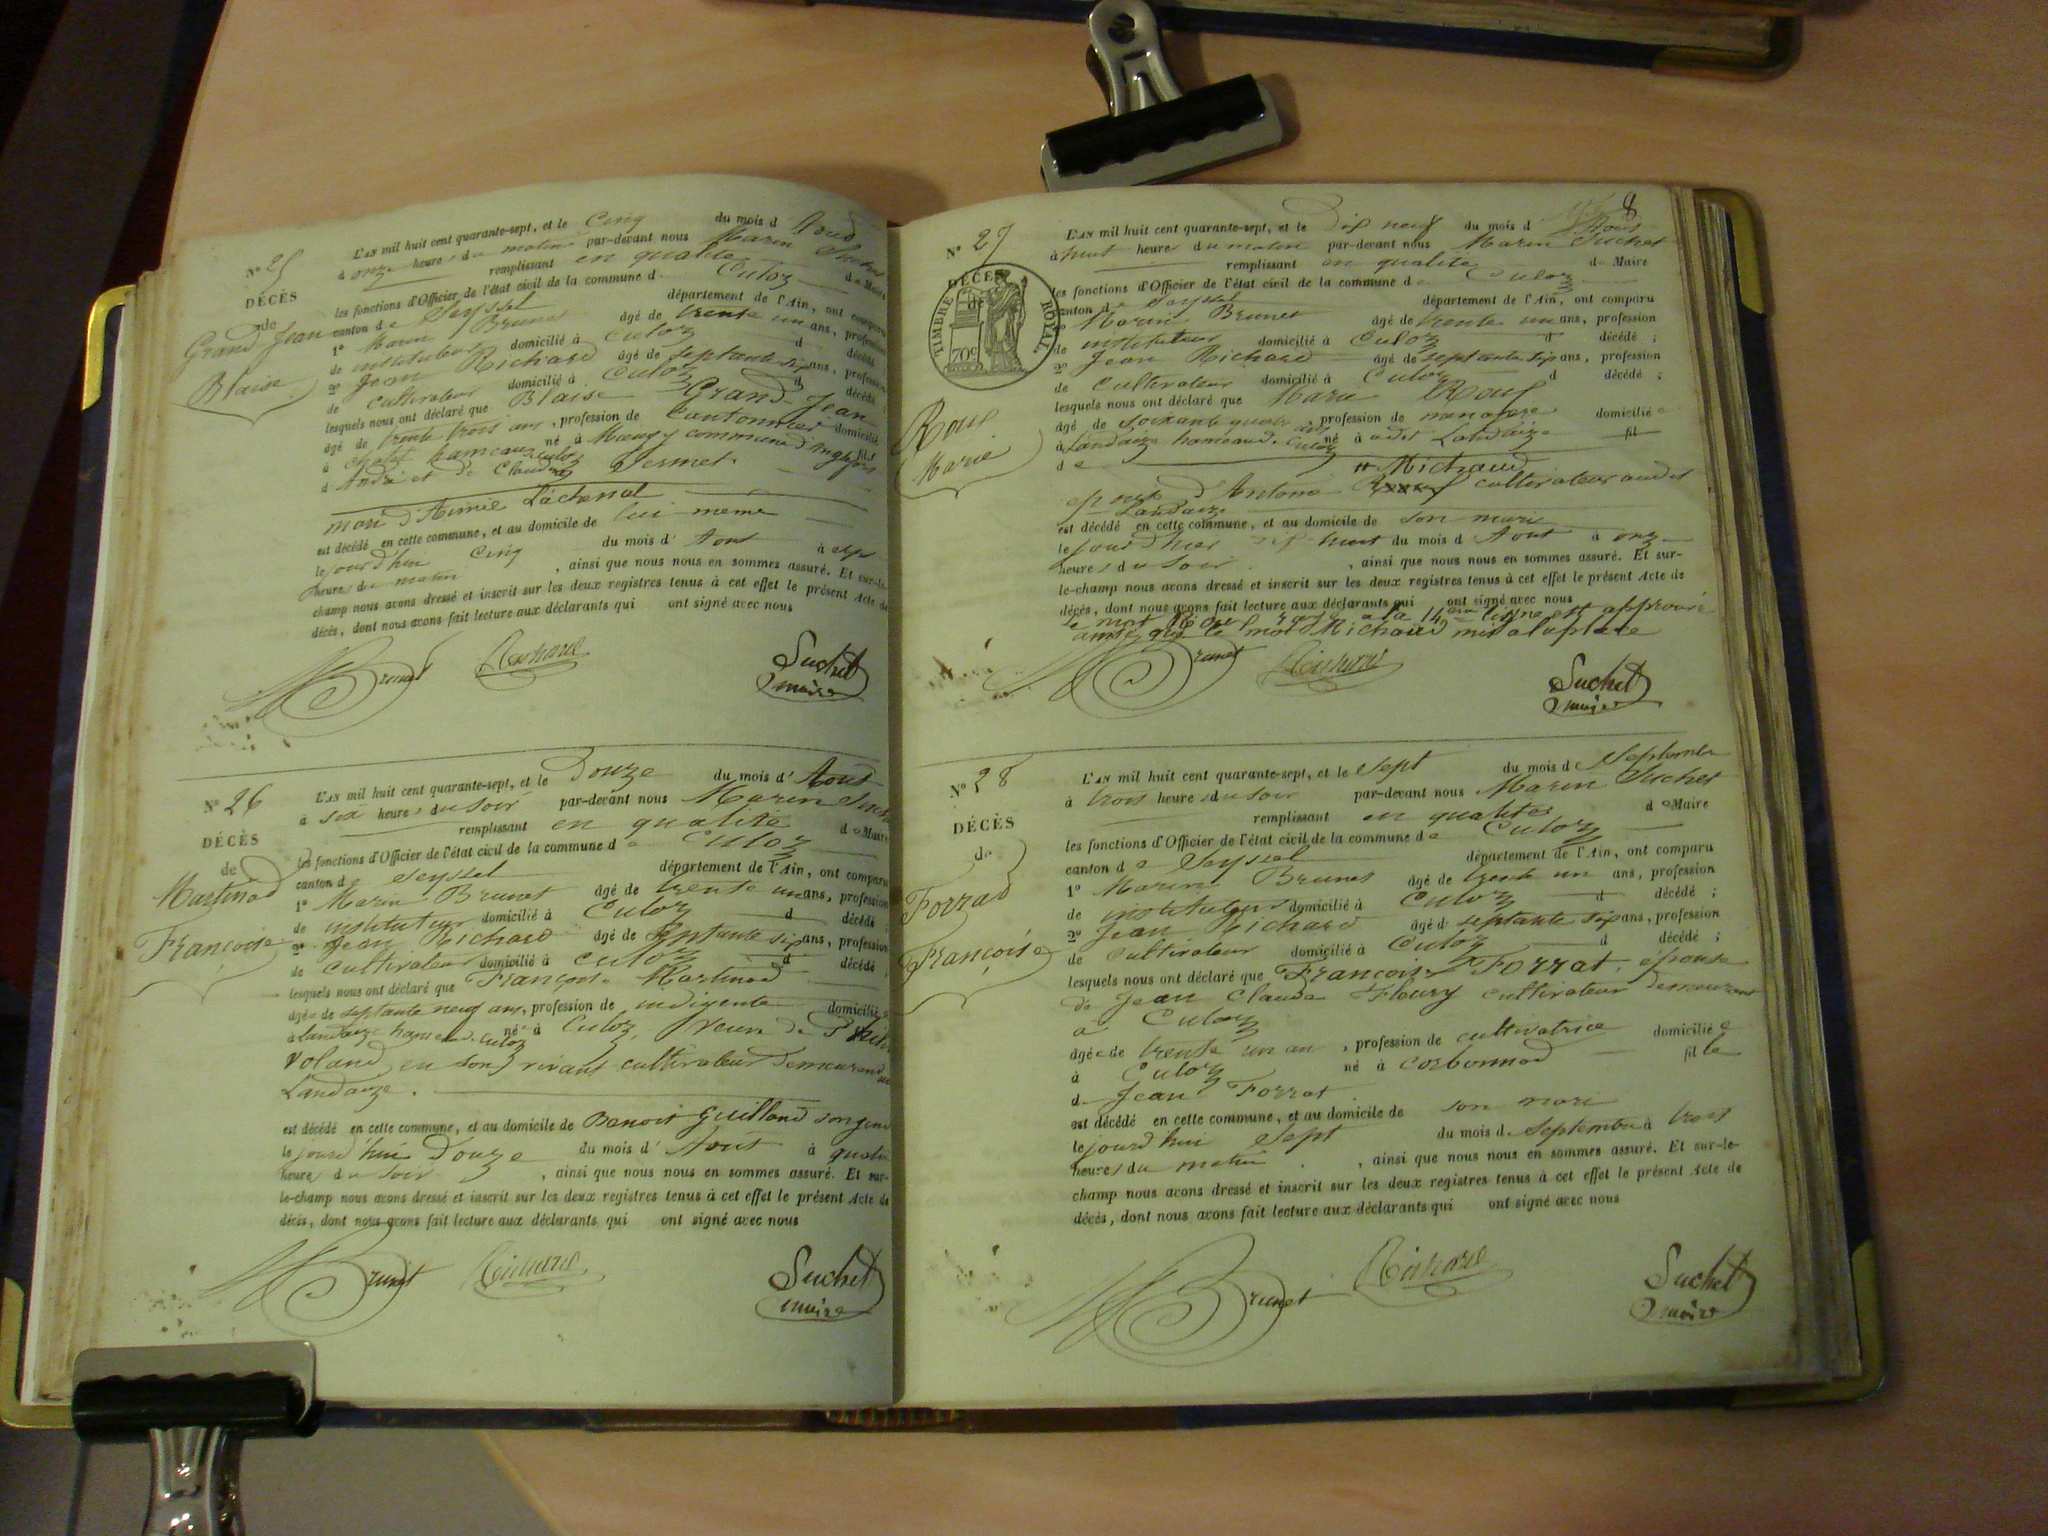 N° 25
DÉCÈS
de
Grand Jean
Blaise
L'AN mil huit cent quarante-sept, et le Cinq du mois d' Aout
à onze heures du matin par-devant nous Marin Suchet
remplissant en qualité de Maire
les fonctions d'Officier de l'état civil de la commune de Culoz
canton de Seyssel département de l'Ain, ont comparu
1° Marin Brunet âgé de trente un ans, profession
de instituteur domicilié à Culoz d décédé ;
2° Jean Richard âgé de septante six ans, profession
de cultivateur domicilié à Culoz d décédé ;
lesquels nous ont déclaré que Blaise Grand Jean
âgé de trente trois ans, profession de Cantonnier domicilié
à chatel hameau Culoz né à commune d'Anglefort fils
d André et de Claudine Vesmet.
mari d'Aimée Lachenal
est décédé en cette commune, et au domicile de lui même
le jourd'hui Cinq du mois d' Aout à
heures du matin , ainsi que nous nous en sommes assuré. Et sur-le-
champ nous avons dressé et inscrit sur les deux registres tenus à cet effet le présent Acte de
décès, dont nous avons fait lecture aux déclarants qui ont signé avec nous
Brunet Richard Suchet
maire
N° 26
DÉCÈS
de
Martinod
Françoise
L'AN mil huit cent quarante-sept, et le Douze du mois d' Aout
à six heures du soir par-devant nous Marin Suchet
remplissant en qualité de Maire
les fonctions d'Officier de l'état civil de la commune de Culoz
canton de Seyssel département de l'Ain, ont comparu
1° Marin Brunet âgé de trente un ans, profession
de instituteur domicilié à Culoz d décédé ;
2° Jean Richard âgé de septante six ans, profession
de cultivateur domicilié à Culoz d décédé ;
lesquels nous ont déclaré que Françoise Martinod
âgée de septante neuf ans, profession de indigente domiciliée
à Landaize hameau Culoz né à Culoz, veuve de
Voland, en son vivant cultivateur demeurant
Landaize.
est décédé en cette commune, et au domicile de Benoit Guilland son gendre
le jourd'hui Douze du mois d' Aout à quatre
heures du soir , ainsi que nous nous en sommes assuré. Et sur-
le-champ nous avons dressé et inscrit sur les deux registres tenus à cet effet le présent Acte de
décès, dont nous avons fait lecture aux déclarants qui ont signé avec nous
Brunet Richard Suchet
maire
8
N° 27
DÉCÈS
de
TIMBRE ROYAL
70c
Roux
Marie
L'AN mil huit cent quarante-sept, et le Dix neuf du mois d' Aout
à huit heures du matin par-devant nous Marin Suchet
remplissant en qualité de Maire
les fonctions d'Officier de l'état civil de la commune de Culoz
canton de Seyssel département de l'Ain, ont comparu
1° Marin Brunet âgé de trente un ans, profession
de instituteur domicilié à Culoz d décédé ;
2° Jean Richard âgé de septante six ans, profession
de Cultivateur domicilié à Culoz d décédé ;
lesquels nous ont déclaré que Marie Roux
âgé de soixante quatre ans profession de manœuvre domicilié e
à Landaize hameau de Culoz né à audit Landaize fil
d e
Michaud
épouse d'Antoine cultivateur audit
Landaize
est décédé en cette commune, et au domicile de son mari
le jour d'hier dix huit du mois d Aout à onze
heures du soir , ainsi que nous nous en sommes assuré. Et sur-
le-champ nous avons dressé et inscrit sur les deux registres tenus à cet effet le présent Acte de
décès, dont nous avons fait lecture aux déclarants qui ont signé avec nous
Le mot Roux rayé a la 14eme ligne est approuvé
ainsi que le mot Michaud mis a la place
Brunet Richard Suchet
maire
N° 28
DÉCÈS
de
Forrat
Françoise
L'AN mil huit cent quarante-sept, et le Sept du mois de Septembre
à trois heures du soir par-devant nous Marin Suchet
remplissant en qualité de Maire
les fonctions d'Officier de l'état civil de la commune de Culoz
canton de Seyssel département de l'Ain, ont comparu
1° Marin Brunet âgé de trente un ans, profession
de instituteur domicilié à Culoz d décédé ;
2° Jean Richard âgé de septante six ans, profession
de Cultivateur domicilié à Culoz d décédé ;
lesquels nous ont déclaré que Françoise Forrat, épouse
de Jean Claude Fleury cultivateur demeurant
a Culoz
âgée de trente un an , profession de cultivatrice domicilié e
à Culoz né à Corbonnod fille
de Jean Forrat
est décédé en cette commune, et au domicile de son mari
le jourd'hui Sept du mois de Septembre à trois
heures du matin , ainsi que nous nous en sommes assuré. Et sur-le-
champ nous avons dressé et inscrit sur les deux registres tenus à cet effet le présent Acte de
décès, dont nous avons fait lecture aux déclarants qui ont signé avec nous
Brunet Richard Suchet
maire